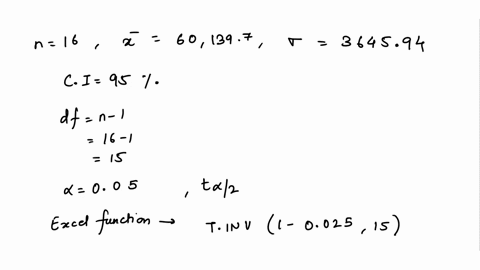 n=16 , x̄ = 60,139.7, σ = 3645.94
C.I = 95 %.
df = n-1
= 16-1
= 15
α = 0.05 , tα/2
Excel function → T.INV (1-0.025, 15)